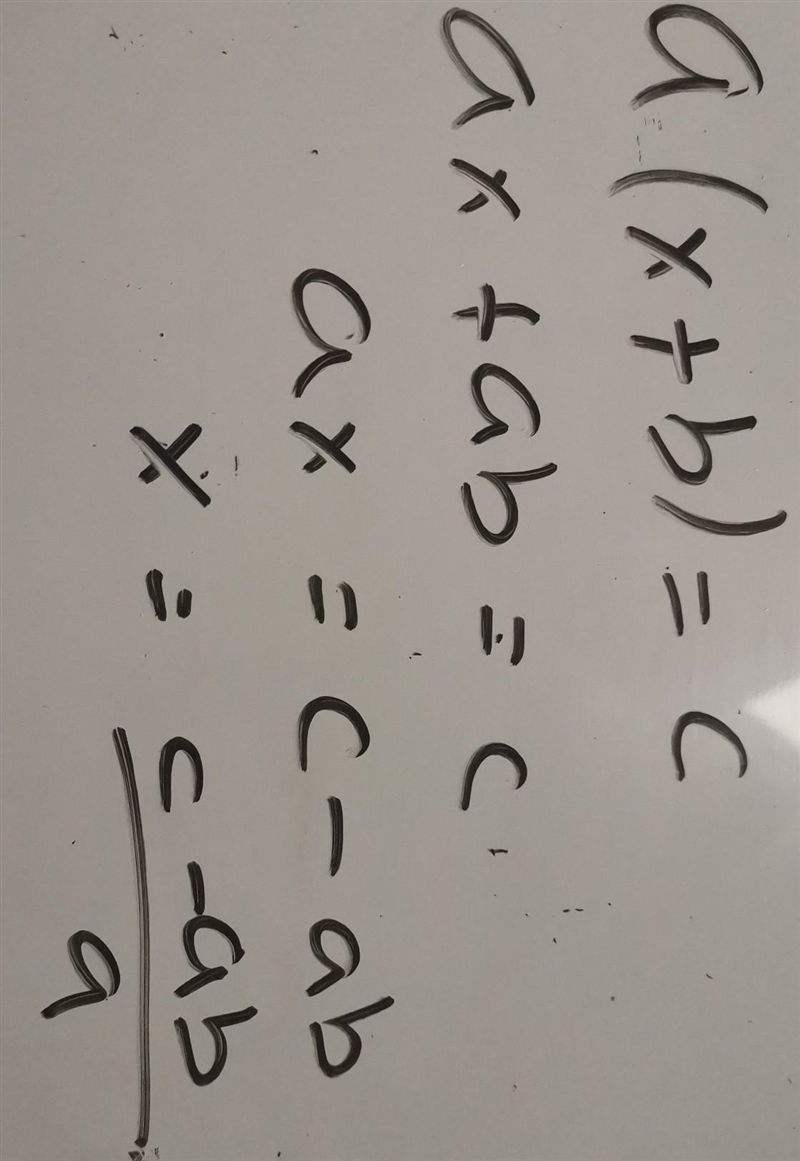 a(x+b) = c
ax + ab = c
ax = c - ab
x = \frac{c - ab}{a}